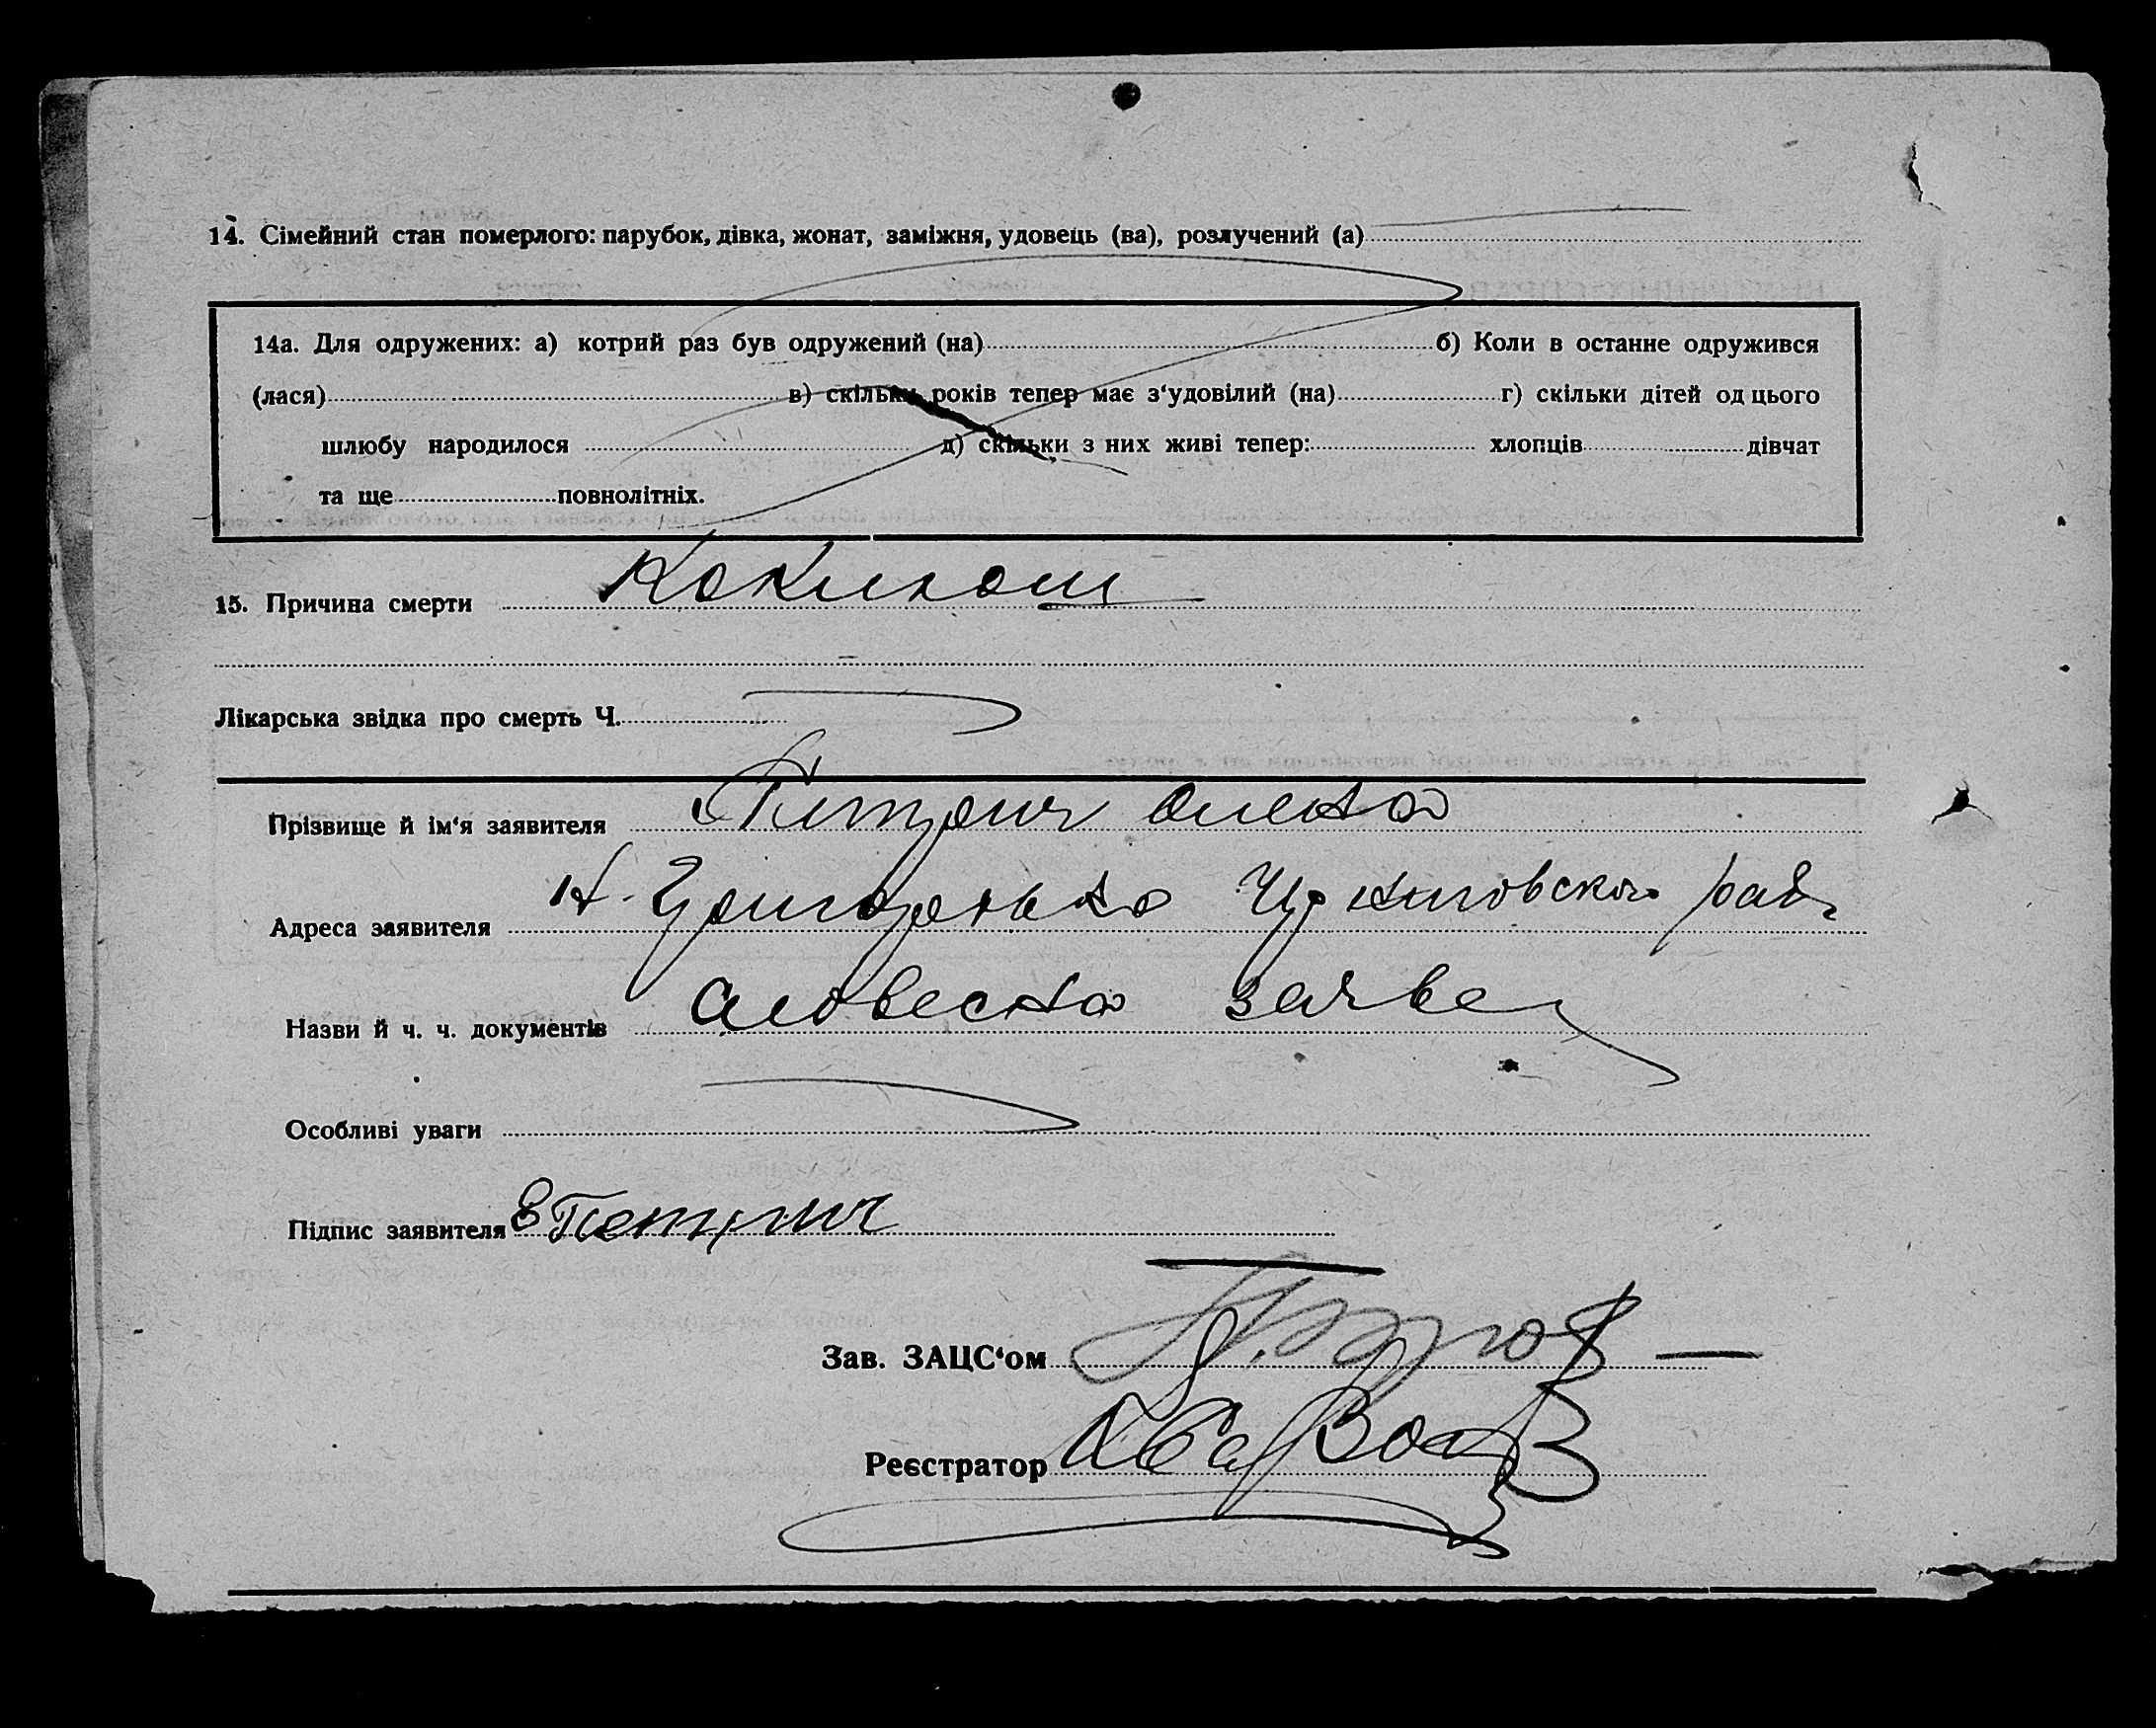 14. Сімейний стан померлого: парубок, дівка, жонат, заміжня, удовець (ва), розлучений (а)
14а. Для одружених: а) котрий раз був одружений (на) б) Коли в останне одружився
(лася) в) скільки років тепер має з‘удовілий (на) г) скільки дітей од цього
шлюбу народилося д) скільки з них живі тепер: хлопців дівчат
та ще повнолітніх.
15. Причина смерти Коклюш
Лікарська звідка про смерть Ч.
Прізвище й ім‘я заявителя Олена
Адреса заявителя
Назви й ч. ч. документів словесна заява
Особливі уваги
Підпис заявителя
Зав. ЗАЦС‘ом
Реєстратор